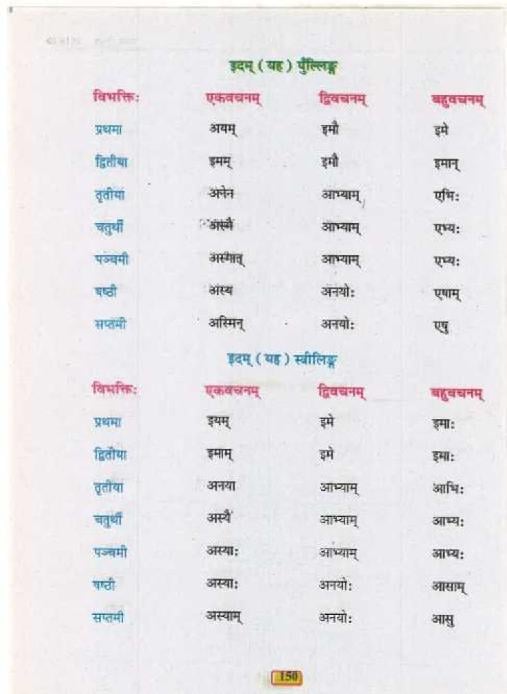 इदम् ( यह ) पुँल्लिङ्ग
विभक्तिः एकवचनम् द्विवचनम् बहुवचनम्
प्रथमा अयम् इमौ इमे
द्वितीया इमम् इमौ इमान्
तृतीया अनेन आभ्याम् एभिः
चतुर्थी अस्मै आभ्याम् एभ्यः
पञ्चमी अस्मात् आभ्याम् एभ्यः
षष्ठी अस्य अनयोः एषाम्
सप्तमी अस्मिन् अनयोः एषु
इदम् ( यह ) स्त्रीलिङ्ग
विभक्तिः एकवचनम् द्विवचनम् बहुवचनम्
प्रथमा इयम् इमे इमाः
द्वितीया इमाम् इमे इमाः
तृतीया अनया आभ्याम् आभिः
चतुर्थी अस्यै आभ्याम् आभ्यः
पञ्चमी अस्याः आभ्याम् आभ्यः
षष्ठी अस्याः अनयोः आसाम्
सप्तमी अस्याम् अनयोः आसु
150